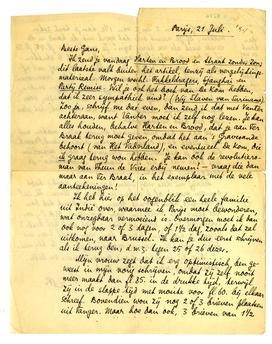 Parijs, 21 Juli. '34
Beste Jans,
Ik zend je vandaag Harten en Brood en Straat zonder Zon;
dit laatste valt buiten het artikel, tenzij als vergelijkings-
materiaal. Morgen volgt: Fakkeldragers, Gjanghis en
Party Remise. Wil je ook De Kom hebben,
dat ik zeer sympathiek vind? (Wij Slaven van Suriname)
Zoo ja, schrijf me dan even, dan zend ik dat met Vanter
achteraan, want Vanter moet ik zelf nog lezen. Je kan
alles houden, behalve Harten en Brood, dat je van ter
Braak terug moet geven, omdat het aan 's Gravesande
behoort (van Het Vaderland), en eventueel De Kom, dien
ik graag terug wou hebben. Je kan ook de revolutie-ro-
man van Theun de Vries erbij nemen - vraag die dan
maar aan ter Braak, in het exemplaar met de vele
aanteekeningen!
Ik heb hier op het oogenblik een heele familie
uit Indië over, waarmee ik Parijs moet bewonderen,
wat onzegbaar vermoeiend is. Overmorgen moet ik dan
ook nog voor 2 of 3 dagen, of 1½ dag, zooals dat zal
uitkomen, naar Brussel. Ik kan je dus eerst schrijven
als ik terug ben, d.w.z. tegen 25 of 26 dezer.
Mijn vrouw zegt dat ik erg optimistisch ben ge-
weest in mijn vorig schrijven, omdat zij zelf nooit
meer maakt dan fl 85. in de drukke tijd, terwijl
zij in de slappe tijd met moeite fl 60. bij elkaar
schreef. Bovendien won zij nog 2 of 3 brieven plaats
uit Tanger. Maar hoe dan ook, 3 brieven van 1½